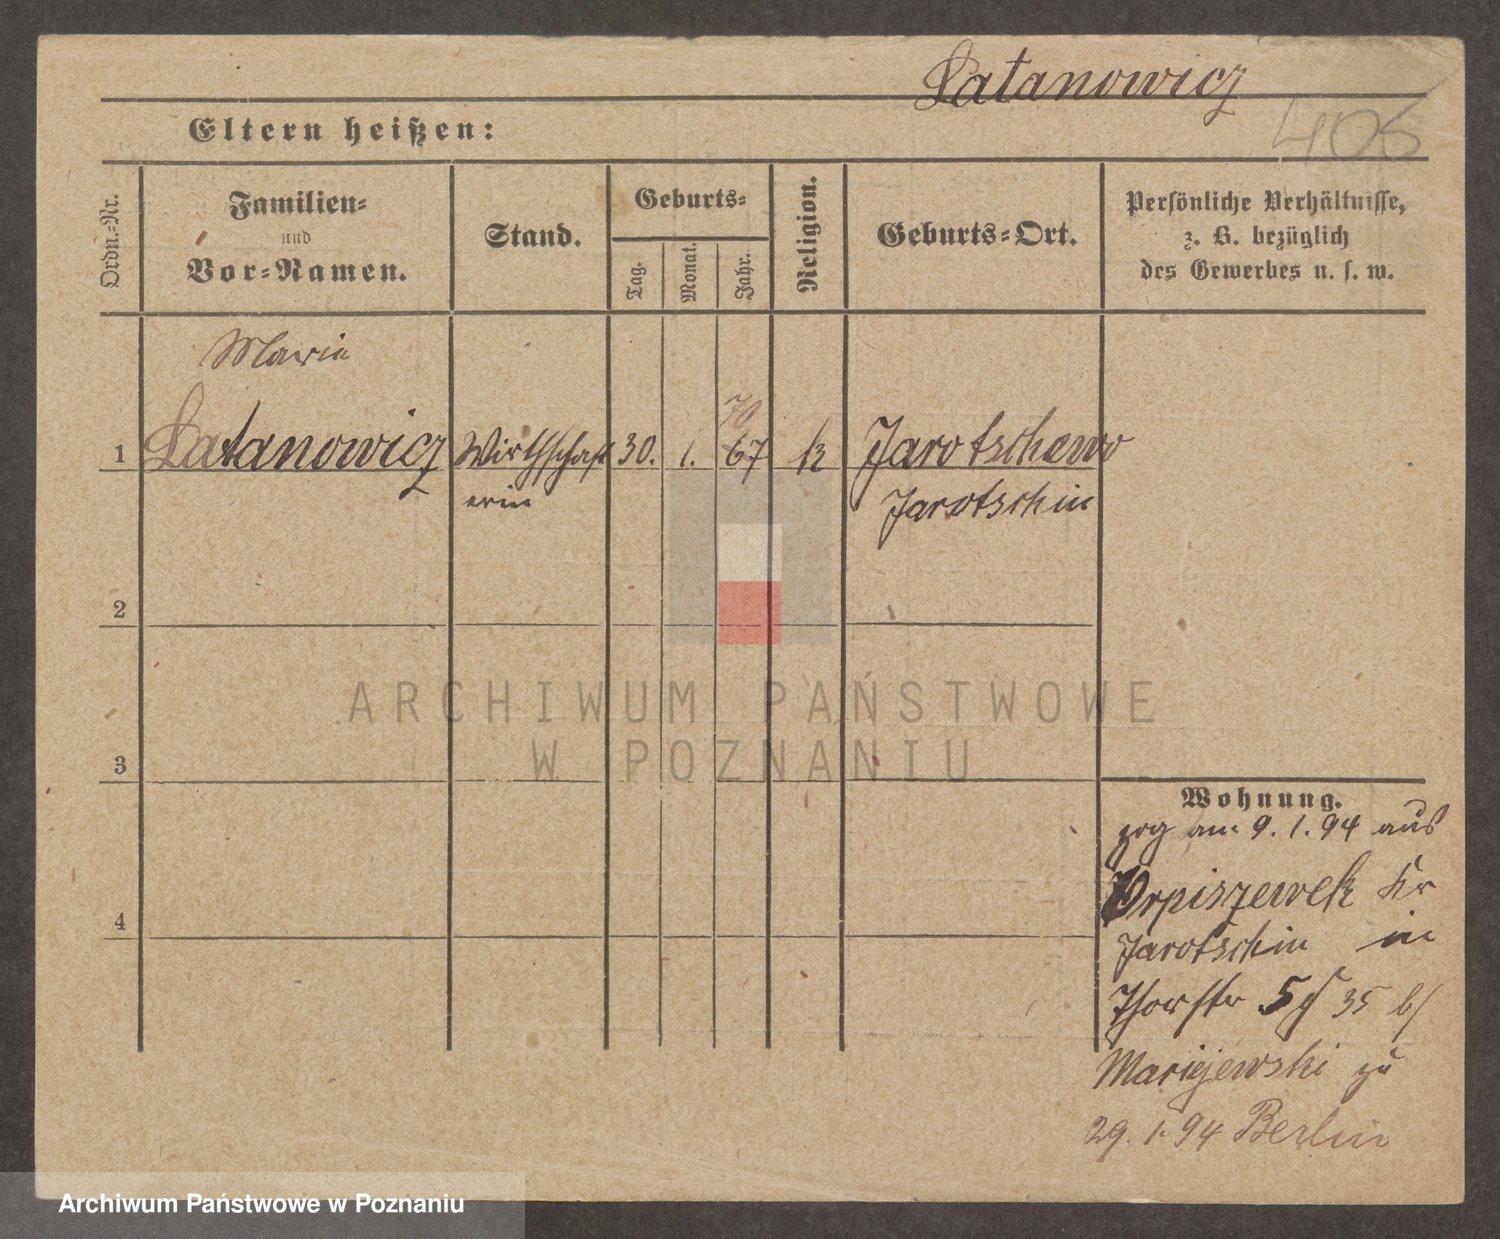 Latanowicz
405
Eltern heißen:
Ordn.-Nr.
Familien-
und
Vor-Namen.
Stand.
Geburts-
Tag.
Monat.
Jahr.
Religion.
Geburts-Ort.
Persönliche Verhältnisse,
z. B. bezüglich
des Gewerbes u. s. w.
Marie
70
1 Latanowicz Wirthschaft 30. 1. 67 k Jarotschewo
erin Jarotschin
2
ARCHIWUM PAŃSTWOWE
W POZNANIU
3
Wohnung.
zog am 9. 1. 94 aus
Orpiszewek Kr
4
Jarotschin in
Thorstr 5 35 b/
Maciejewski zu
29. 1. 94 Berlin
Archiwum Państwowe w Poznaniu